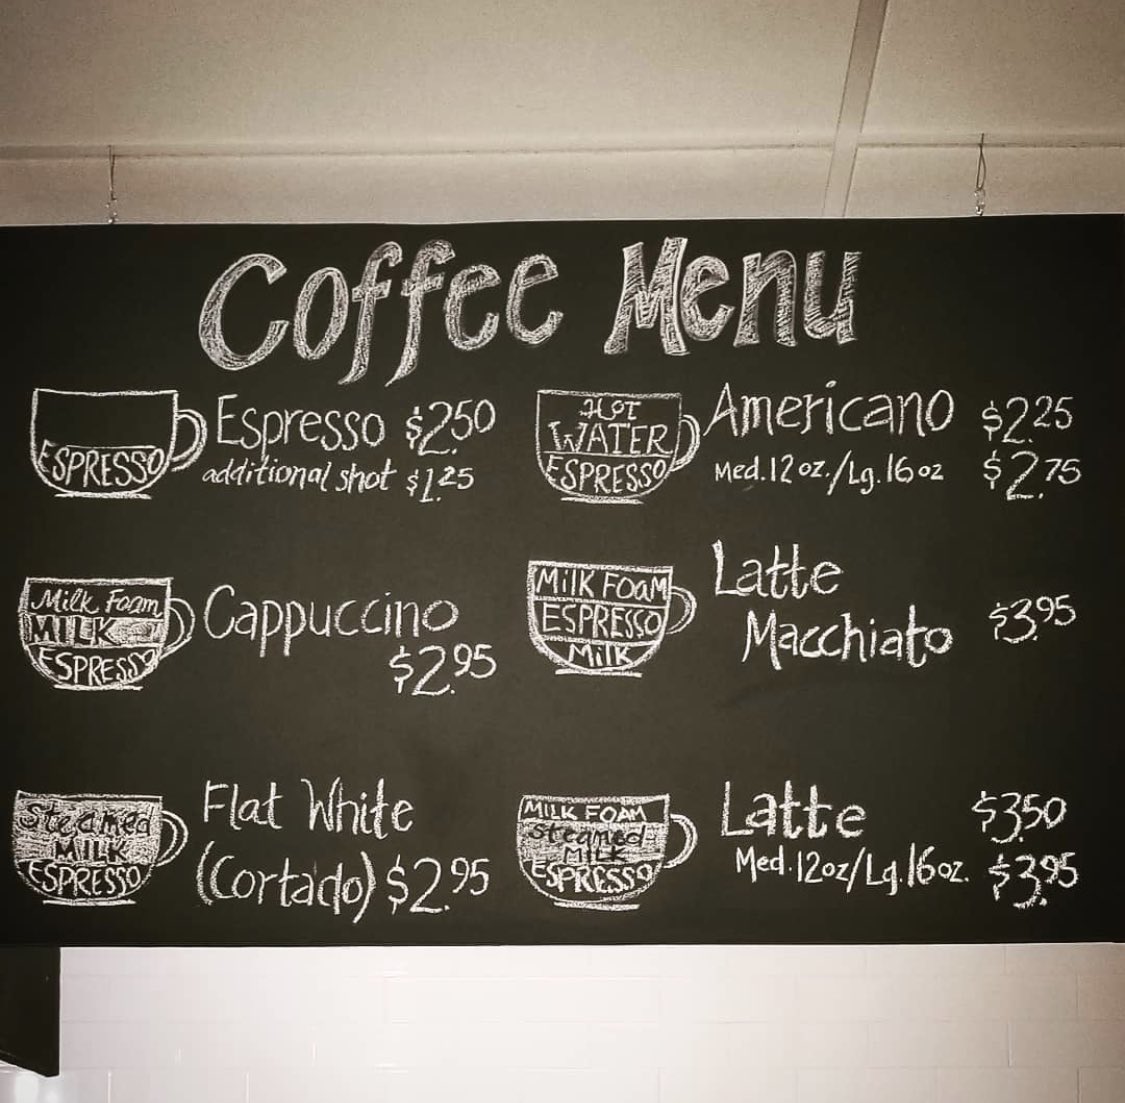 Coffee Menu
ESPRESSO
Espresso $2.50
additional shot $1.25
HOT
WATER
ESPRESSO
Americano $2.25
Med.12oz./Lg.16oz $2.75
Milk Foam
MILK
ESPRESSO
Cappuccino
$2.95
MilK FOaM
ESPRESSO
MilK
Latte
Macchiato $3.95
Steamed
MILK
ESPRESSO
Flat White
(Cortado) $2.95
MILK FOAM
Steamed
MILK
ESPRESSO
Latte $3.50
Med.12oz/Lg.16oz. $3.95